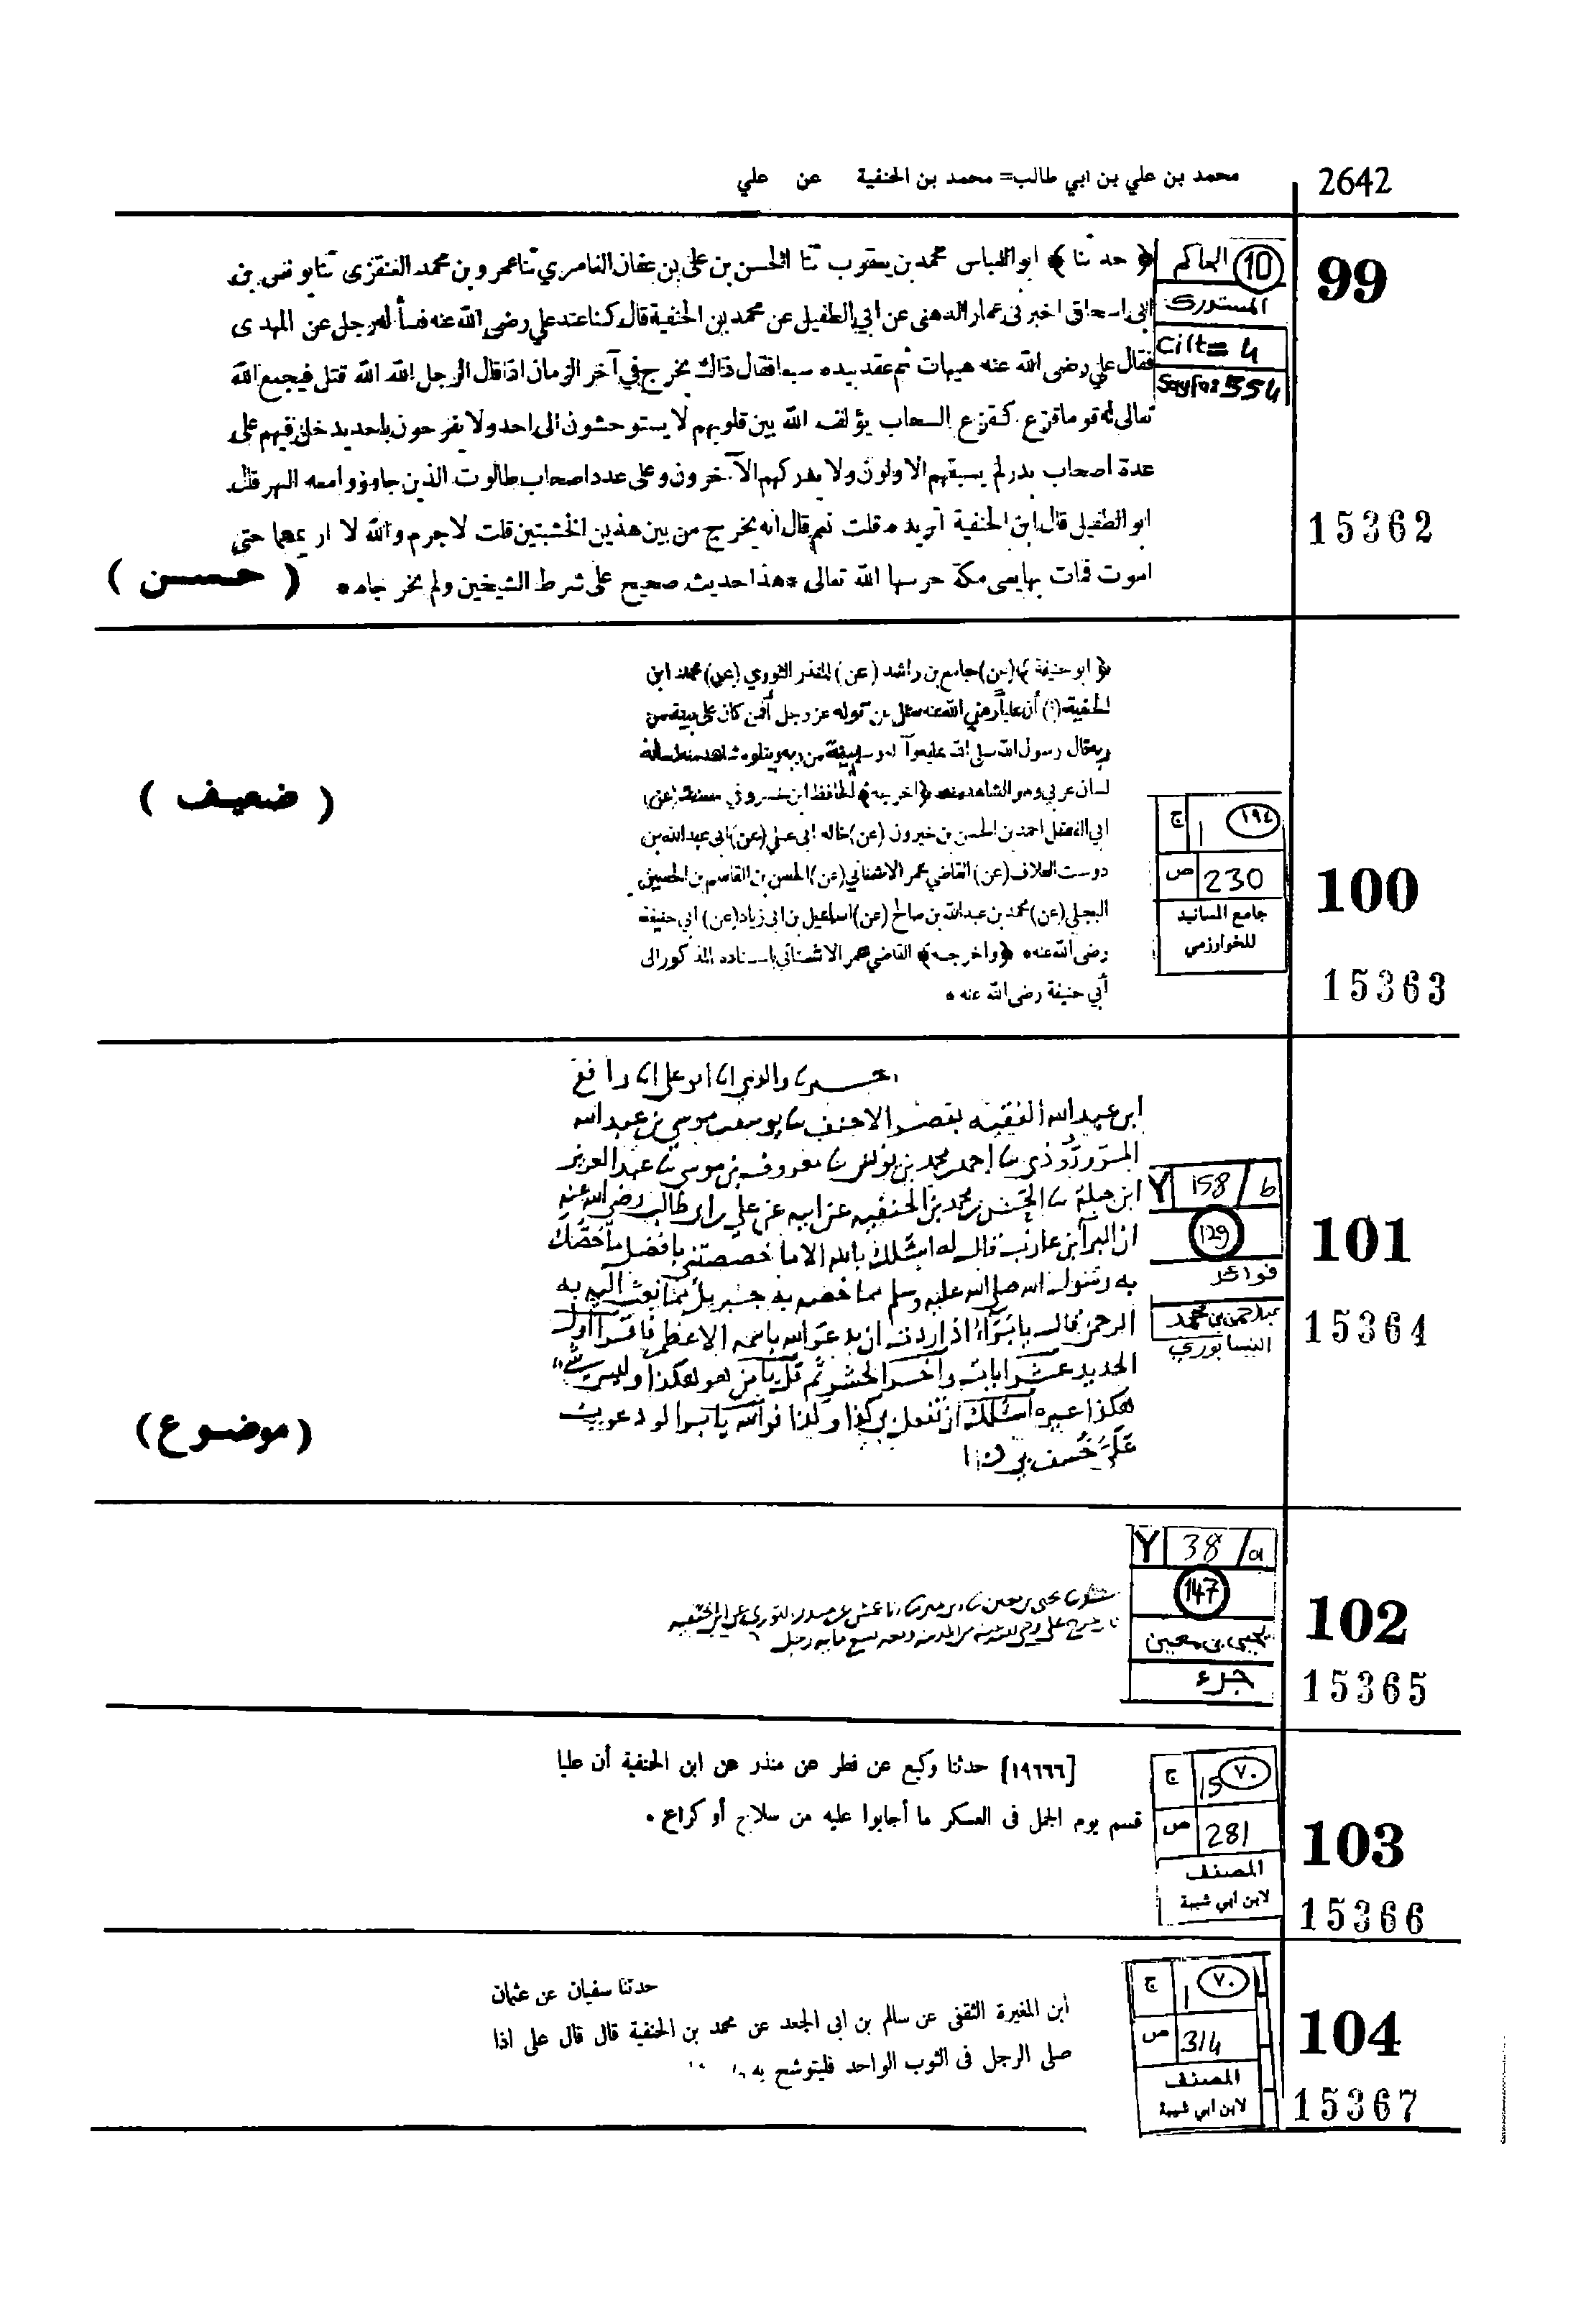 محمد بن علي بن ابي طالب= محمد بن الحنفية عن علي
2642
99
10
الحاكم
المستدرك
Cilt= 4
Sayfa: 554
﴿ حدثنا ﴾ ابو العباس محمد بن يعقوب ثنا الحسن بن علي بن عفان العامري ثنا عمرو بن محمد العنقزى ثنا يونس بن
ابى اسحاق اخبرنى عمار الدهنى عن ابي الطفيل عن محمد بن الحنفية قال كنا عند علي رضى الله عنه فسأله رجل عن المهدى
فقال علي رضى الله عنه هيهات ثم عقد بيده سبعا فقال ذاك يخرج في آخر الزمان اذا قال الرجل الله الله قتل فيجمع الله
تعالى له قوما قزع كقزع السحاب يؤلف الله بين قلوبهم لا يستوحشون الى احد ولا يفرحون باحد يدخل فيهم على
عدة اصحاب بدر لم يسبقهم الاولون ولا يدركهم الآخرون وعلى عدد اصحاب طالوت الذين جاوزوا معه النهر قال
ابو الطفيل قال ابن الحنفية أتريده قلت نعم قال انه يخرج من بين هذين الخشبتين قلت لا جرم والله لا اريمهما حتى
اموت فمات بها يعنى مكة حرسها الله تعالى * هذا حديث صحيح على شرط الشيخين ولم يخرجاه *
( حسن )
15362
﴿ ابو حنيفة ﴾ (عن) جامع بن راشد (عن) المنذر الثوري (عن) محمد ابن
الحنفية أن علياً رضي الله عنه سئل عن قوله عز وجل أفمن كان على بينة من
ربه قال رسول الله صلى الله عليه وآله وسلم بينة من ربه ويتلوه شاهد منه لسانه
لسان عربي وهو الشاهد منه ﴿اخرجه﴾ الحافظ ابن خسرو في مسنده (عن)
ابي الفضل احمد بن الحسن بن خيرون (عن) خاله ابى علي (عن) ابى عبدالله بن
دوست العلاف (عن) القاضي عمر الاشناني (عن) الحسن بن القاسم بن الحسين
البجلي (عن) محمد بن عبدالله بن صالح (عن) اسماعيل بن ابى زياد (عن) ابي حنيفة
رضى الله عنه ﴿واخرجه﴾ القاضي عمر الاشناني باسناده المذكور الى
أبي حنيفة رضى الله عنه *
( ضعيف )
١٩٤
ج 1
ص 230
جامع المسانيد
للخوارزمي
100
15363
ابن عبد الله الفقيه بقصر الاحنف يوسف موسى بن عبد الله
احمد بن محمد بن يونس معروف بن موسى عبد العزيز
ابن الحسن بن محمد بن الحنفيه عن ابيه عن علي بن ابى طالب رضى الله عنه
ان البرآ بن عازب قال له اسئلك بالله الا ما خصصتني بافضل ما خصك
به رسول الله صلى الله عليه وسلم مما خصه به جبريل مما بعث اليه به
الرحمن قال يا برآ اذا اردت ان تدعو الله باسمه الاعظم فاقرا اول
الحديد عشر ايات وآخر الحشر ثم قل يا من هو هكذا وليس شئ
هكذا غيره اسئلك ان تفعل بى كذا وكذا فوالله يا برا لو دعوت
علي لخسف بي
(موضوع)
Y 158/b
129
فوائد
عبدالرحمن بن محمد
النيسابوري
101
15364
Y 38/a
147
يحيى بن معين
جزء
102
15365
[١٩٦٦٦] حدثنا وكيع عن فطر عن منذر عن ابن الحنفية أن عليا
قسم يوم الجمل فى العسكر ما أجابوا عليه من سلاح أو كراع .
٧٠
ج 15
ص 281
المصنف
لابن ابي شيبة
103
15366
حدثنا سفيان عن عثمان
ابن المغيرة الثقفى عن سالم بن ابى الجعد عن محمد بن الحنفية قال قال على اذا
صلى الرجل فى الثوب الواحد فليتوشح به
٧٠
ج 1
ص 314
المصنف
لابن ابي شيبة
104
15367